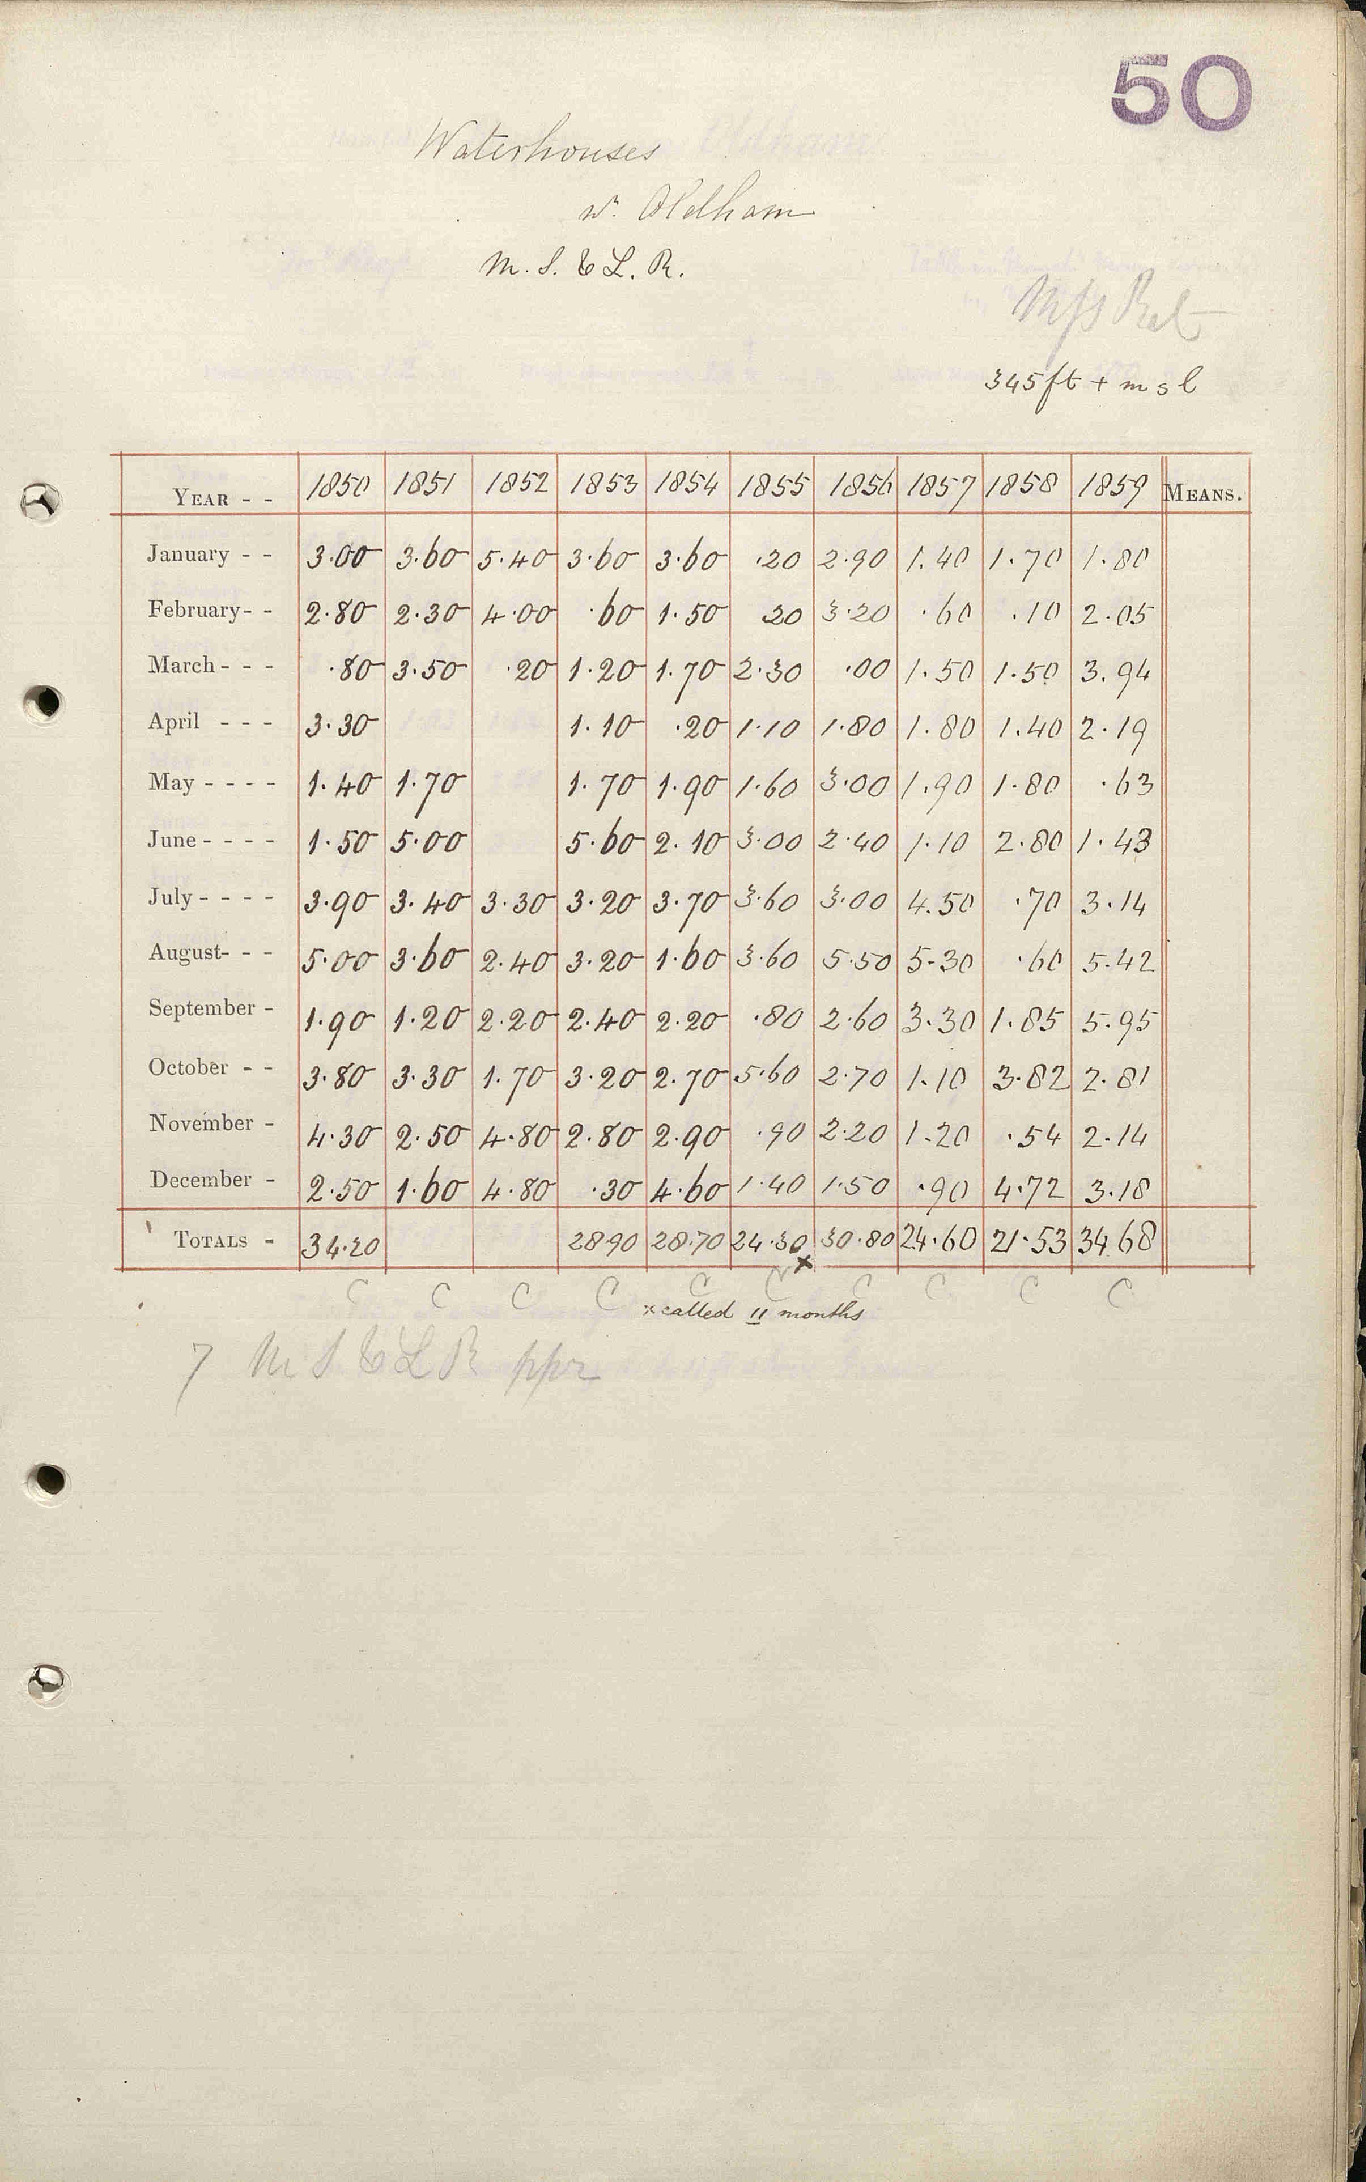 50
Waterhouses
nr Oldham
M. S. & L. R.
Mss Ret
345 ft + m s l
YEAR - - 1850 1851 1852 1853 1854 1855 1856 1857 1858 1859 MEANS.
January - - 3.00 3.60 5.40 3.60 3.60 .20 2.90 1.40 1.70 1.80
February - - 2.80 2.30 4.00 .60 1.50 .20 3.20 .60 .10 2.05
March - - - .80 3.50 .20 1.20 1.70 2.30 .00 1.50 1.50 3.94
April - - - 3.30 1.10 .20 1.10 1.80 1.80 1.40 2.19
May - - - - 1.40 1.70 1.70 1.90 1.60 3.00 1.90 1.80 .63
June - - - - 1.50 5.00 5.60 2.10 3.00 2.40 1.10 2.80 1.43
July - - - - 3.90 3.40 3.30 3.20 3.70 3.60 3.00 4.50 .70 3.14
August - - - 5.00 3.60 2.40 3.20 1.60 3.60 5.50 5.30 .60 5.42
September - 1.90 1.20 2.20 2.40 2.20 .80 2.60 3.30 1.85 5.95
October - - 3.80 3.30 1.70 3.20 2.70 5.60 2.70 1.10 3.82 2.81
November - 4.30 2.50 4.80 2.80 2.90 .90 2.20 1.20 .54 2.14
December - 2.50 1.60 4.80 .30 4.60 1.40 1.50 .90 4.72 3.18
TOTALS - 34.20 28.90 28.70 24.30 x 30.80 24.60 21.53 34.68
C C C C C C C C C C
x called 11 months
7 M S & L R ppr